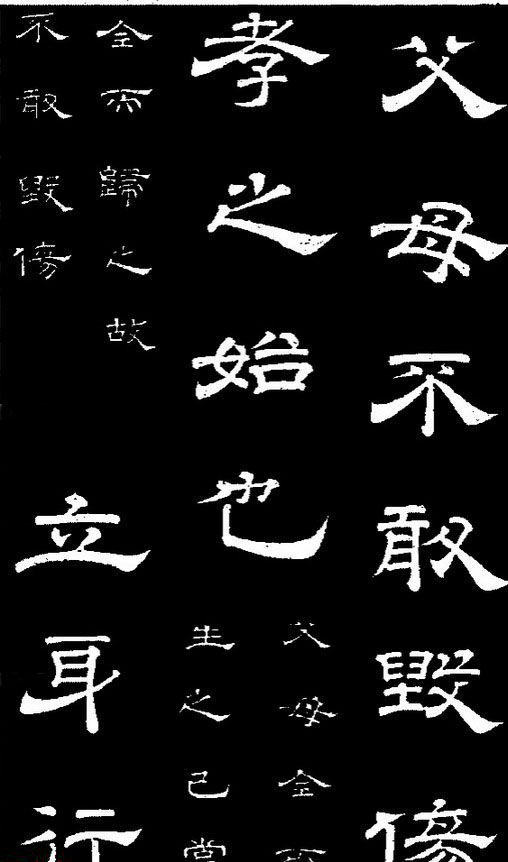 父母不敢毀傷
孝之始也
父母全而
生之己當
全而歸之故
不敢毀傷
立身行